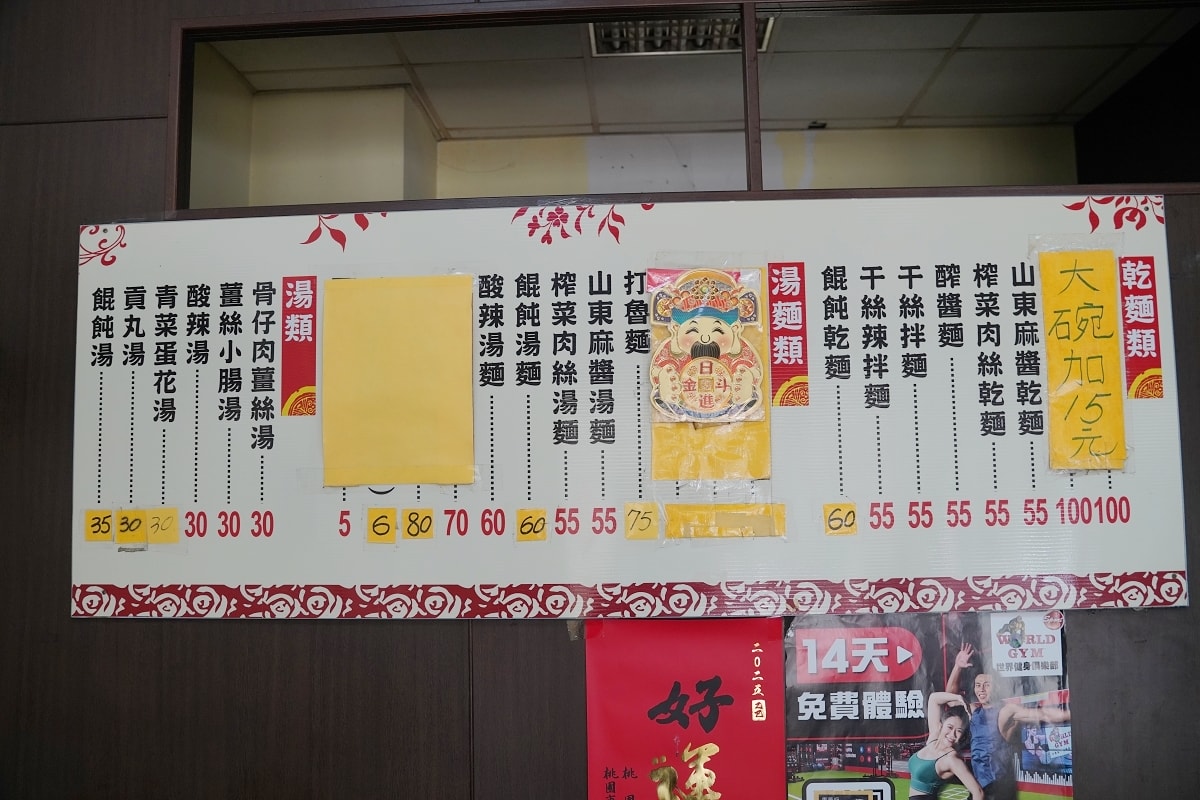 乾麵類
大碗加15元
100
100
山東麻醬乾麵 55
榨菜肉絲乾麵 55
醡醬麵 55
干絲拌麵 55
干絲辣拌麵 55
餛飩乾麵 60
湯麵類
日進斗金
打魯麵 75
山東麻醬湯麵 55
榨菜肉絲湯麵 55
餛飩湯麵 60
酸辣湯麵 60
70
80
6
5
湯類
骨仔肉薑絲湯 30
薑絲小腸湯 30
酸辣湯 30
青菜蛋花湯 30
貢丸湯 30
餛飩湯 35
二〇二五
好運
14天
免費體驗
WORLD GYM
世界健身俱樂部